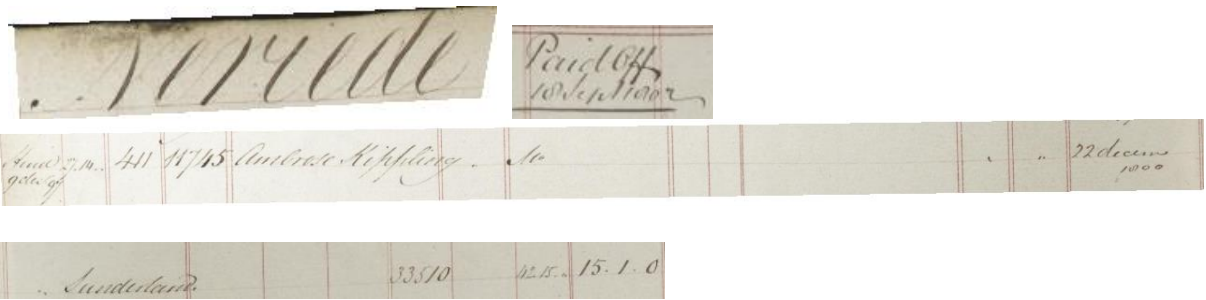 Nereide
Paid Off
18 Sept 1802
411 11745 Ambrose Kippling. Do 22 decem
1800
Sunderland. 33510 42.15.. 15.1.0